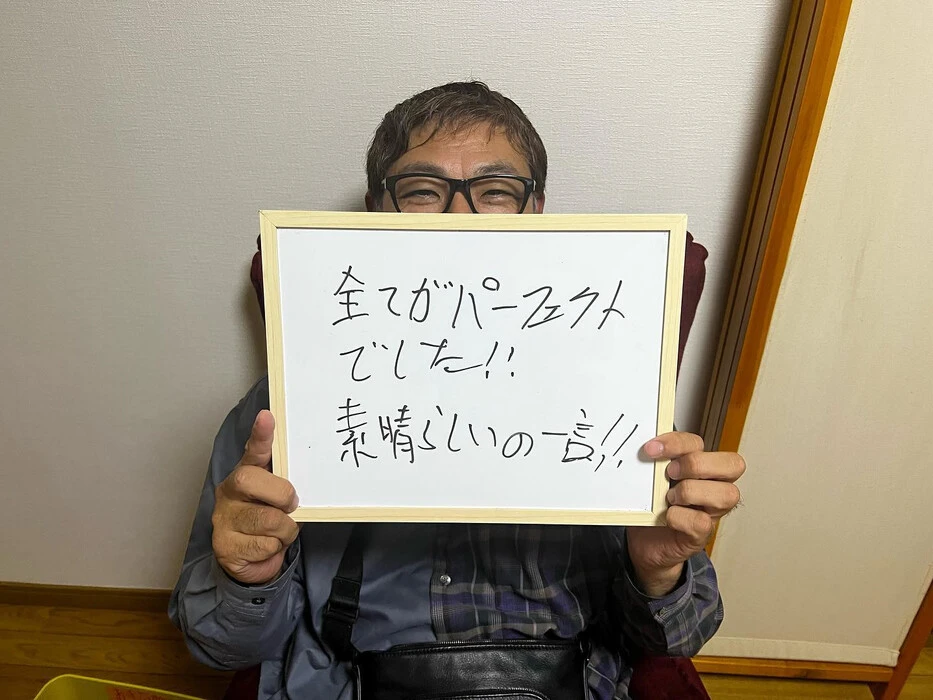 全てがパーフェクト
でした!!
素晴らしいの一言!!